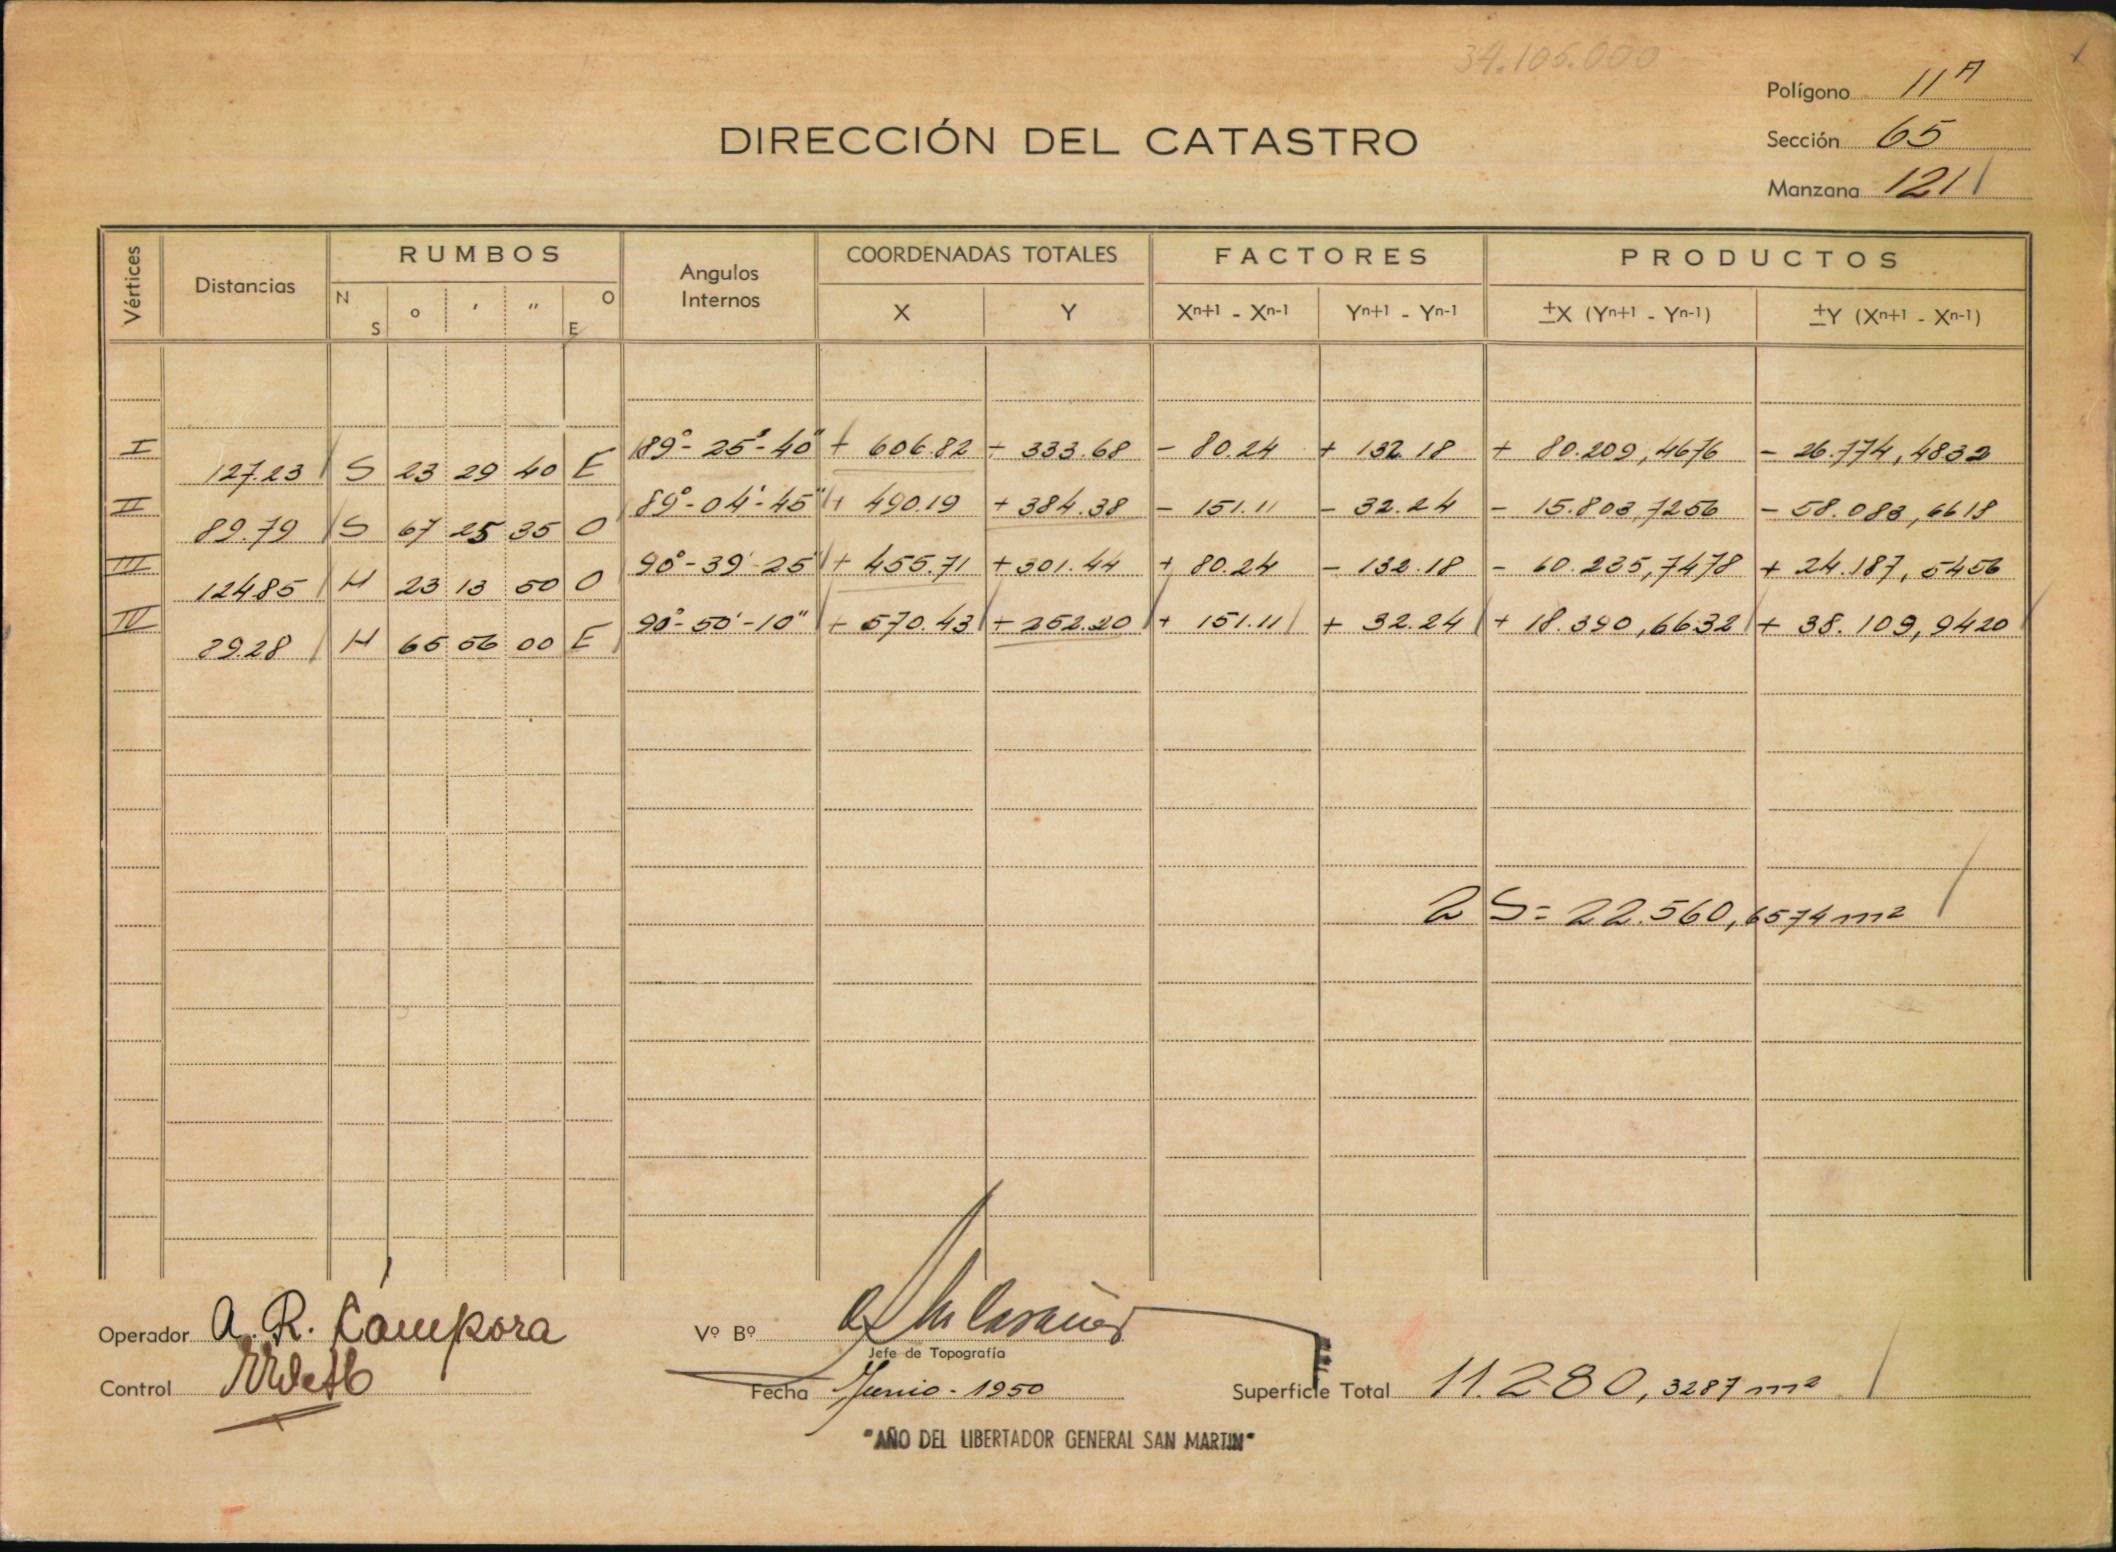 34.105.000
Polígono 11A
DIRECCIÓN DEL CATASTRO
Sección 65
Manzana 121
Vértices Distancias RUMBOS Angulos Internos COORDENADAS TOTALES FACTORES PRODUCTOS
N S o ' " O E X Y Xn+1 - Xn-1 Yn+1 - Yn-1 ±X (Yn+1 - Yn-1) ±Y (Xn+1 - Xn-1)
I 89°-25'-40" + 606.82 + 333.68 - 80.24 + 132.18 + 80.209,4676 - 26.774,4832
127.23 S 23 29 40 E
II 89°-04'-45" + 490.19 + 384.38 - 151.11 - 32.24 - 15.803,7256 - 58.083,6618
89.79 S 67 25 35 O
III 90°-39'-25" + 455.71 + 301.44 + 80.24 - 132.18 - 60.235,7478 + 24.187,5456
124.85 N 23 13 50 O
IV 90°-50'-10" + 570.43 + 252.20 + 151.11 + 32.24 + 18.390,6632 + 38.109,9420
89.28 N 65 56 00 E
2 S = 22.560,6574 m²
Operador A. R. Cámpora
Vº Bº
Jefe de Topografía
Control
Fecha Junio - 1950
Superficie Total 11.280,3287 m²
"AÑO DEL LIBERTADOR GENERAL SAN MARTIN"